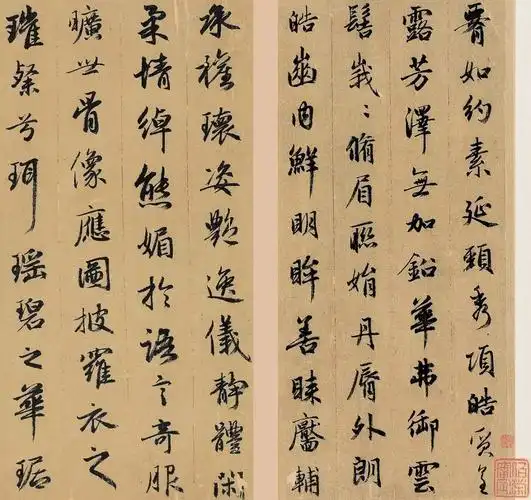 如約素延頸秀項皓質呈
露芳澤無加鉛華弗御雲
髻峩〻脩眉聯娟丹脣外朗
皓齒内鮮明眸善睞靨輔
承權瓌姿艷逸儀靜體閑
柔情綽態媚於語言奇服
曠世骨像應圖披羅衣之
璀粲兮珥瑶碧之華琚